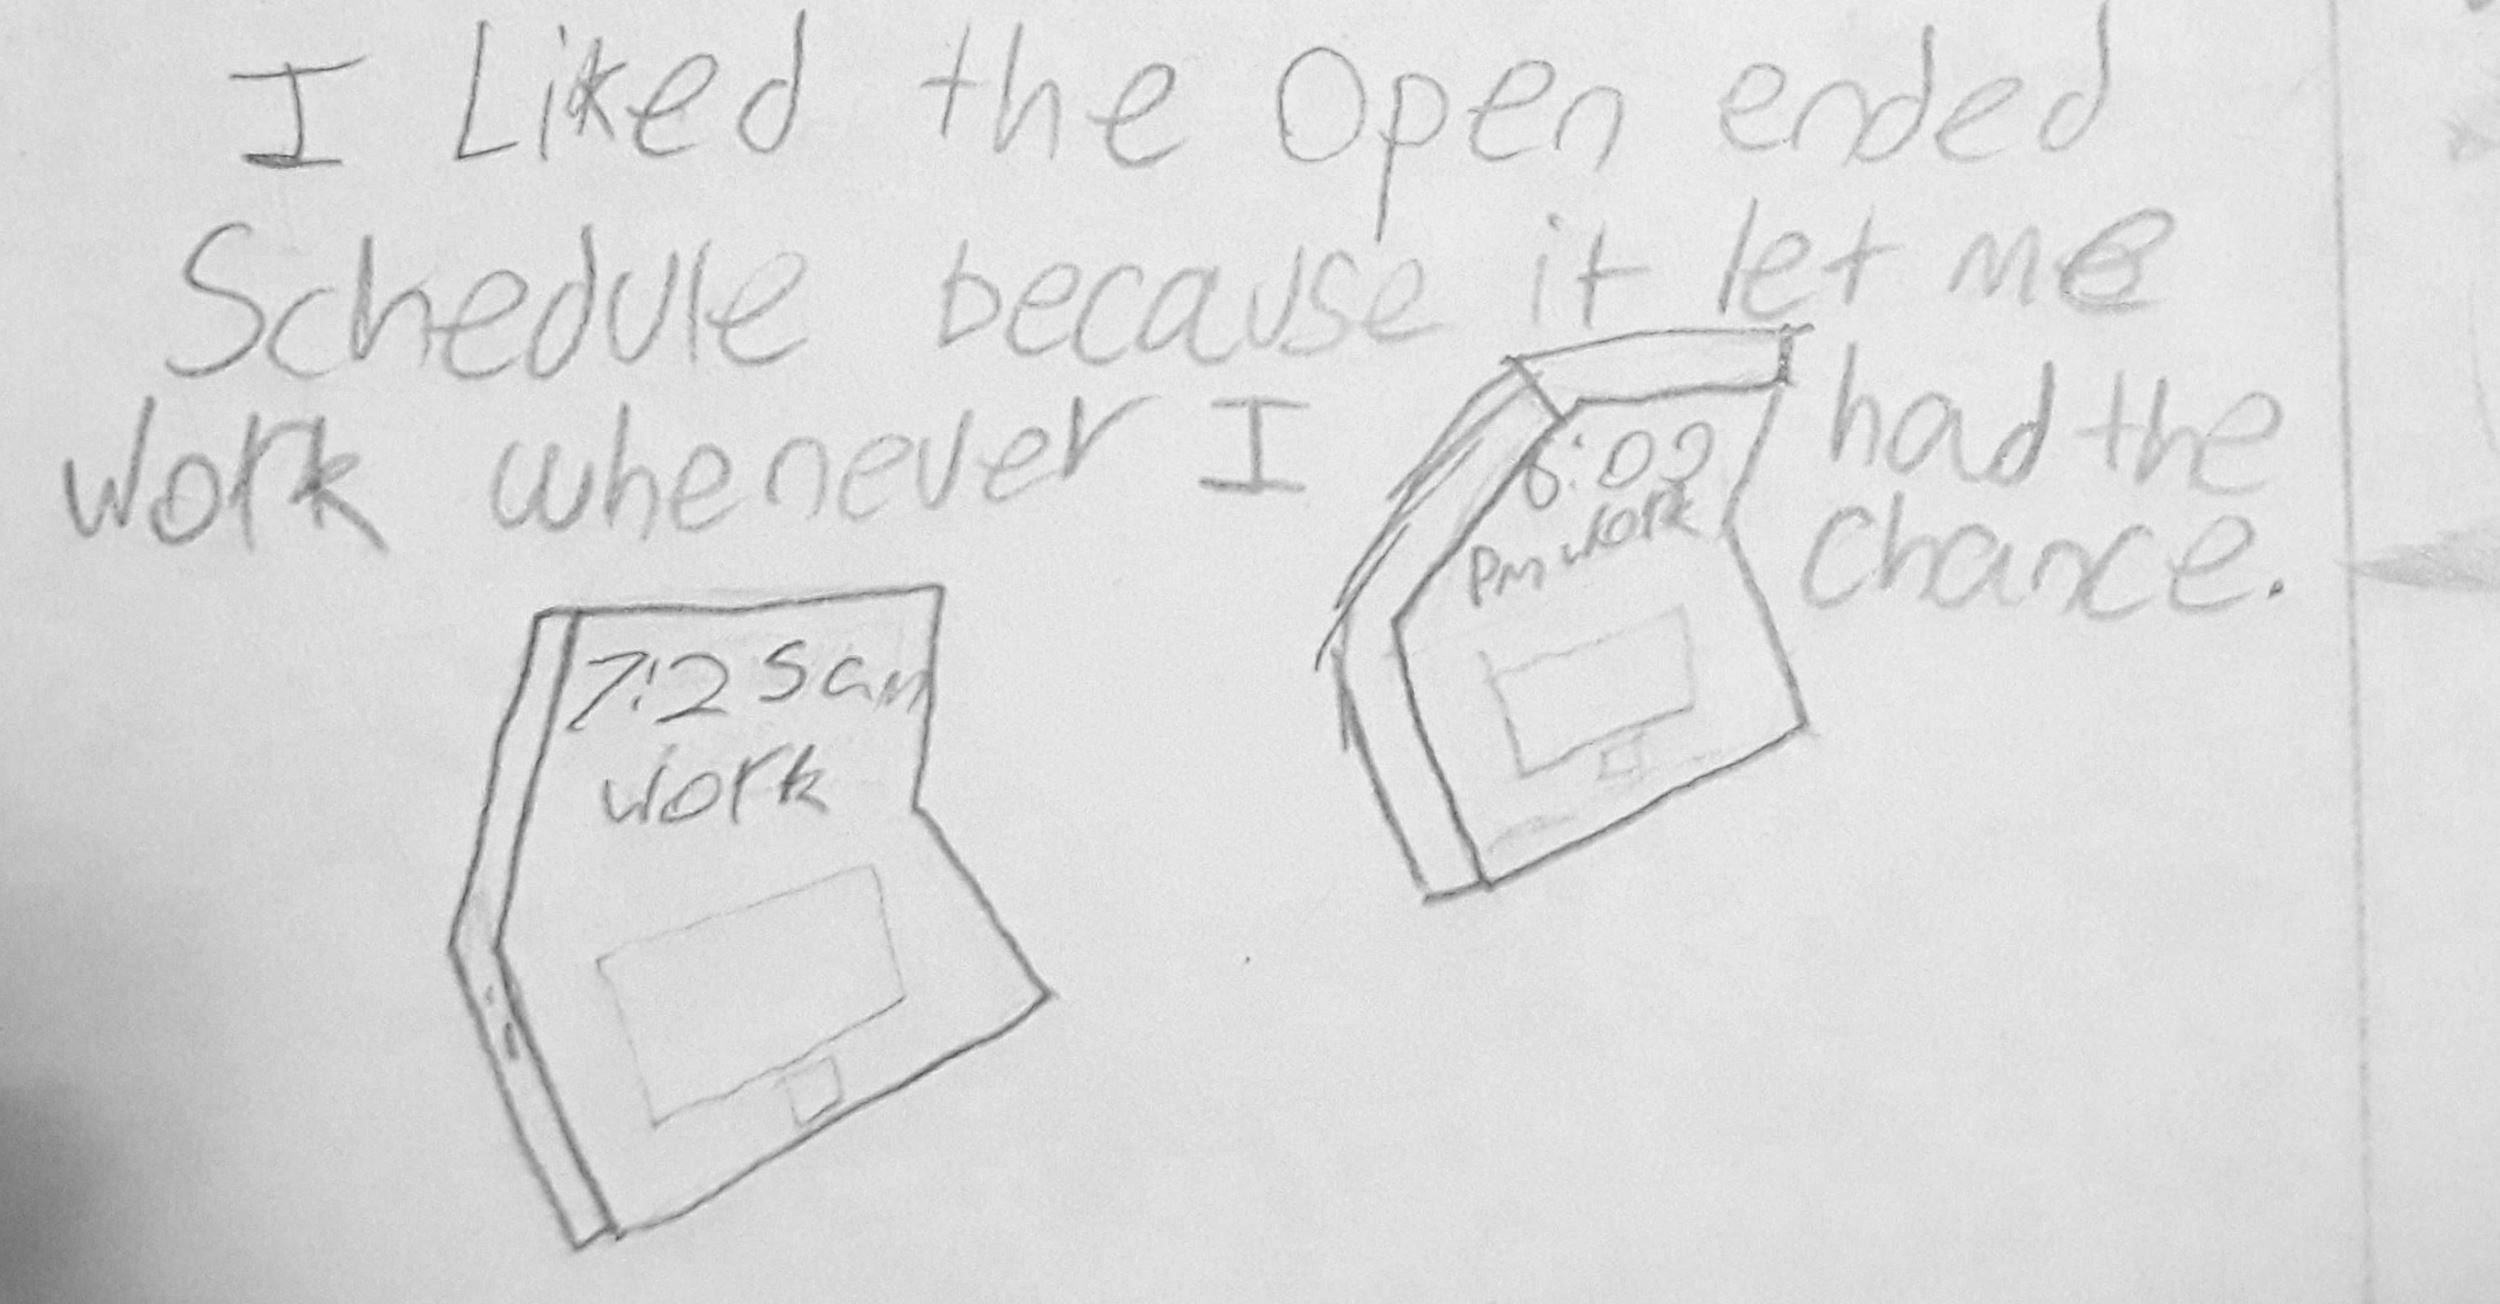 I Liked the Open ended
Schedule because it let me
work whenever I had the
chance.
7:25am
work
6:00
PM work